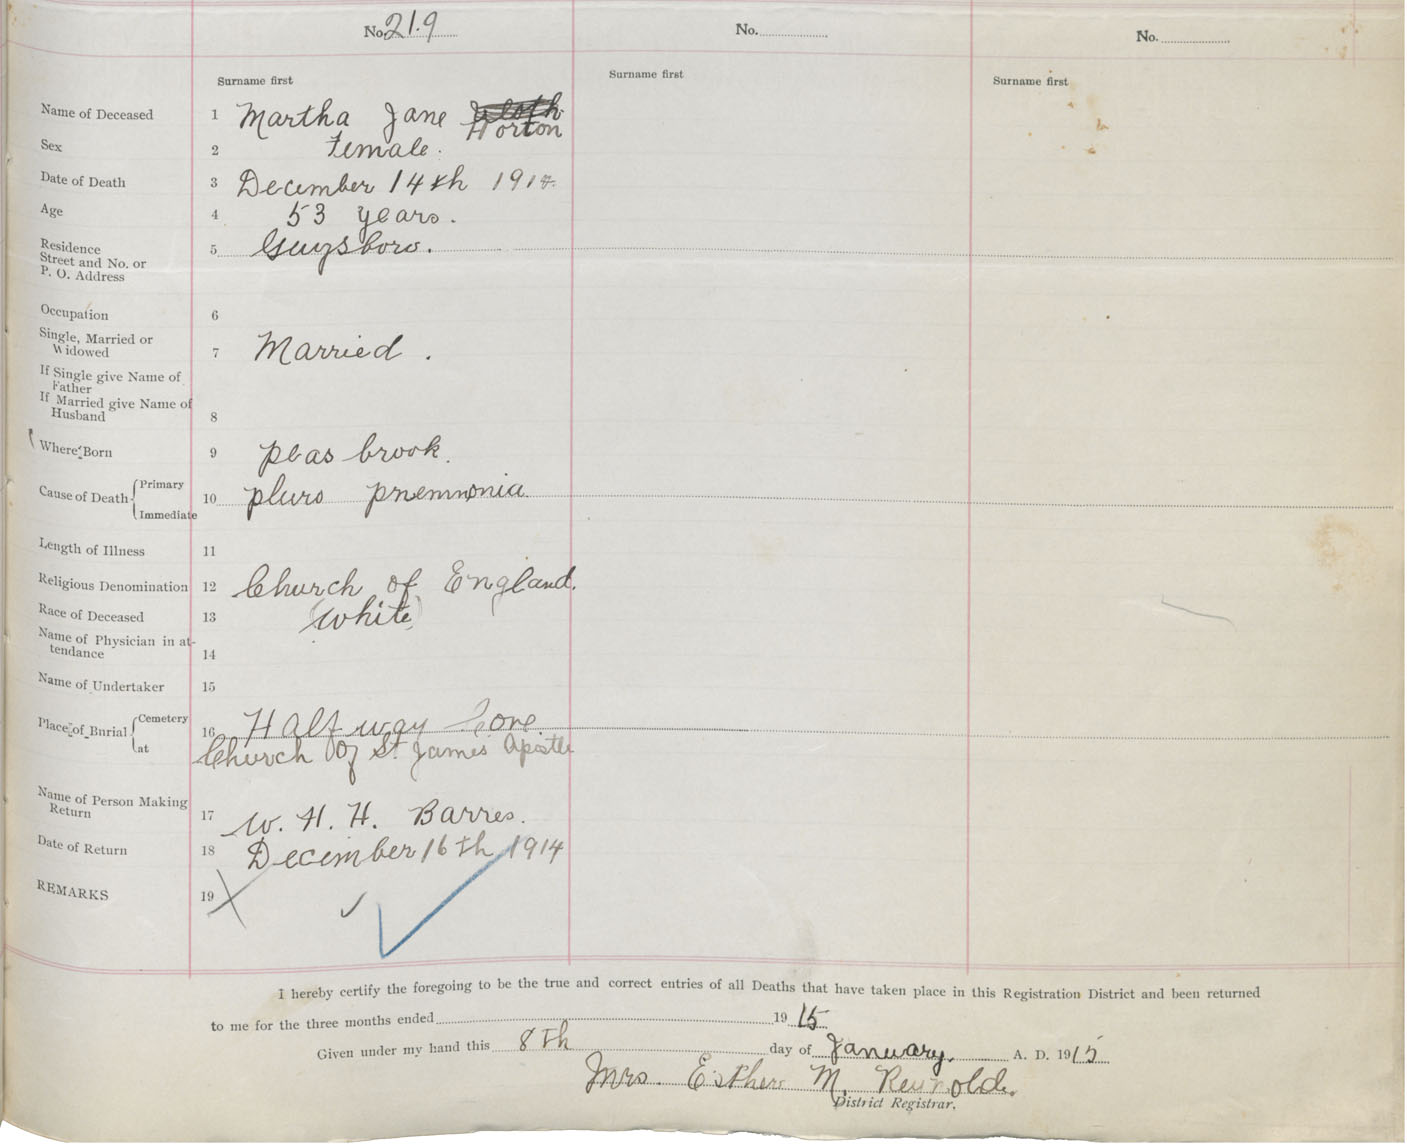 No. 21.9 No. No.
Surname first Surname first Surname first
Name of Deceased 1 Martha Jane Horton
Sex 2 Female.
Date of Death 3 December 14th 1914
Age 4 53 years.
Residence
Street and No. or
P. O. Address 5 Guysboro.
Occupation 6
Single, Married or
Widowed 7 Married.
If Single give Name of
Father
If Married give Name of
Husband 8
Where Born 9 peas brook.
Cause of Death { Primary
Immediate 10 pluro pnemnonia
Length of Illness 11
Religious Denomination 12 Church of England.
Race of Deceased 13 (white)
Name of Physician in at-
tendance 14
Name of Undertaker 15
Place of Burial { Cemetery
at 16 Half way Cove
Church of St James Apostle
Name of Person Making
Return 17 W. H. H. Barres.
Date of Return 18 December 16th 1914
REMARKS 19
I hereby certify the foregoing to be the true and correct entries of all Deaths that have taken place in this Registration District and been returned
to me for the three months ended 19 15
Given under my hand this 8th day of January. A. D. 1915
Mrs. Esther M. Reynolds.
District Registrar.